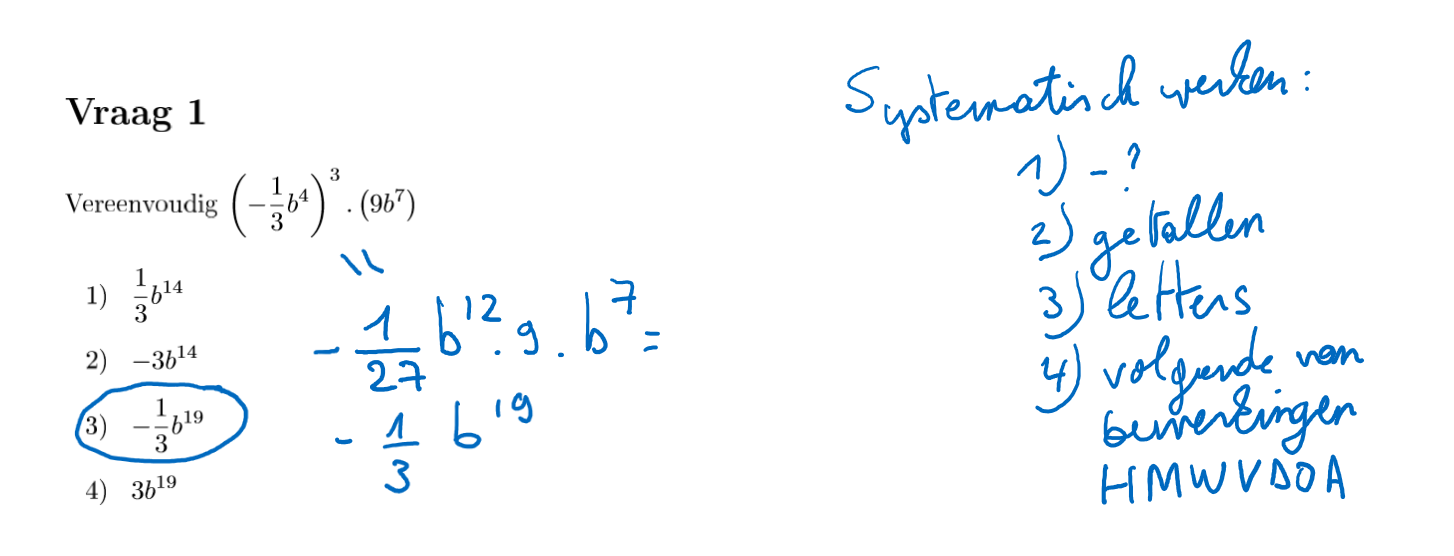 Vraag 1
Vereenvoudig (-1/3 b^4)^3 . (9b^7)
1) 1/3 b^14
2) -3b^14
3) -1/3 b^19
4) 3b^19
=
- 1/27 b^12 . 9 . b^7 =
- 1/3 b^19
Systematisch werken :
1) - ?
2) getallen
3) letters
4) volgende van
bewerkingen
HMWVDOA